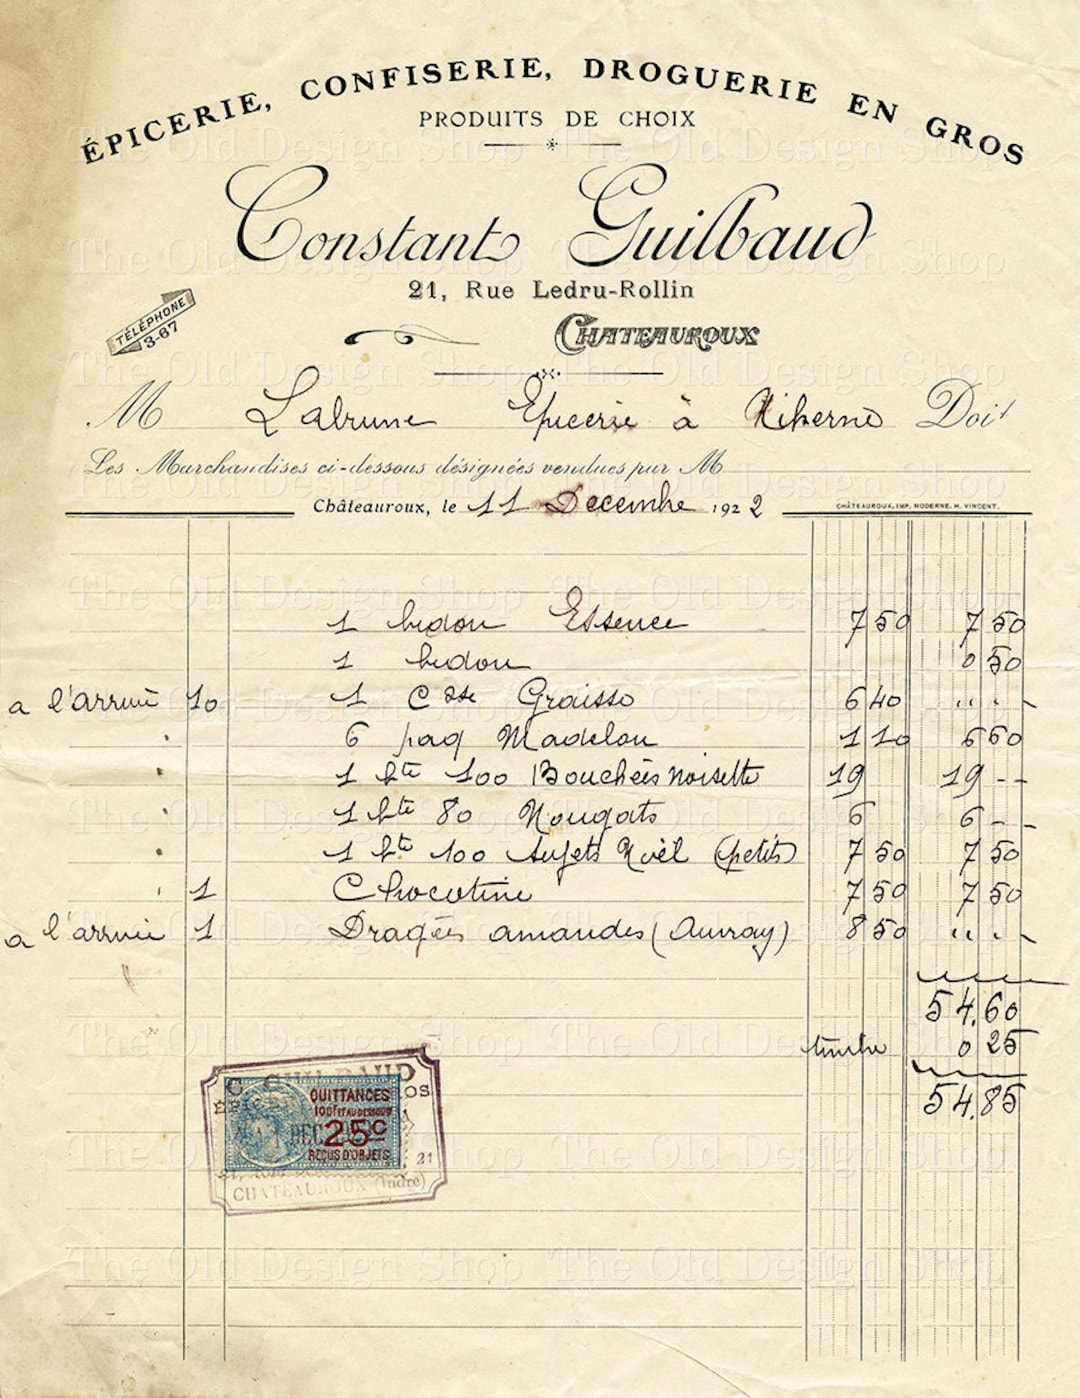 ÉPICERIE, CONFISERIE, DROGUERIE EN GROS
PRODUITS DE CHOIX
Constant Guilbaud
21, Rue Ledru-Rollin
TÉLÉPHONE
3-67
CHATEAUROUX
M Labrune Epicerie à Niherne Doit
Les Marchandises ci-dessous désignées vendues par M
Châteauroux, le 11 Decembre 1922
CHÂTEAUROUX, IMP. MODERNE. H. VINCENT.
1 bidon Essence 7 50 7 50
1 bidon 0 50
a l'arrivé 10 1 Csse Graisse 6 40 " " "
6 paq Madelon 1 10 6 60
1 bte 100 Bouchées noisette 19 19 - -
1 bte 80 Nougats 6 6 - -
1 bte 100 Sujets Noël (petits) 7 50 7 50
1 Chocotine 7 50 7 50
a l'arrivé 1 Dragées amandes (Auvray) 8 50 " " "
54,60
timbre 0 25
54,85
C. GUILBAUD
QUITTANCES
100F ET AU DESSOUS
DEC
25c
REÇUS D'OBJETS
21
CHATEAUROUX (Indre)
The Old Design Shop